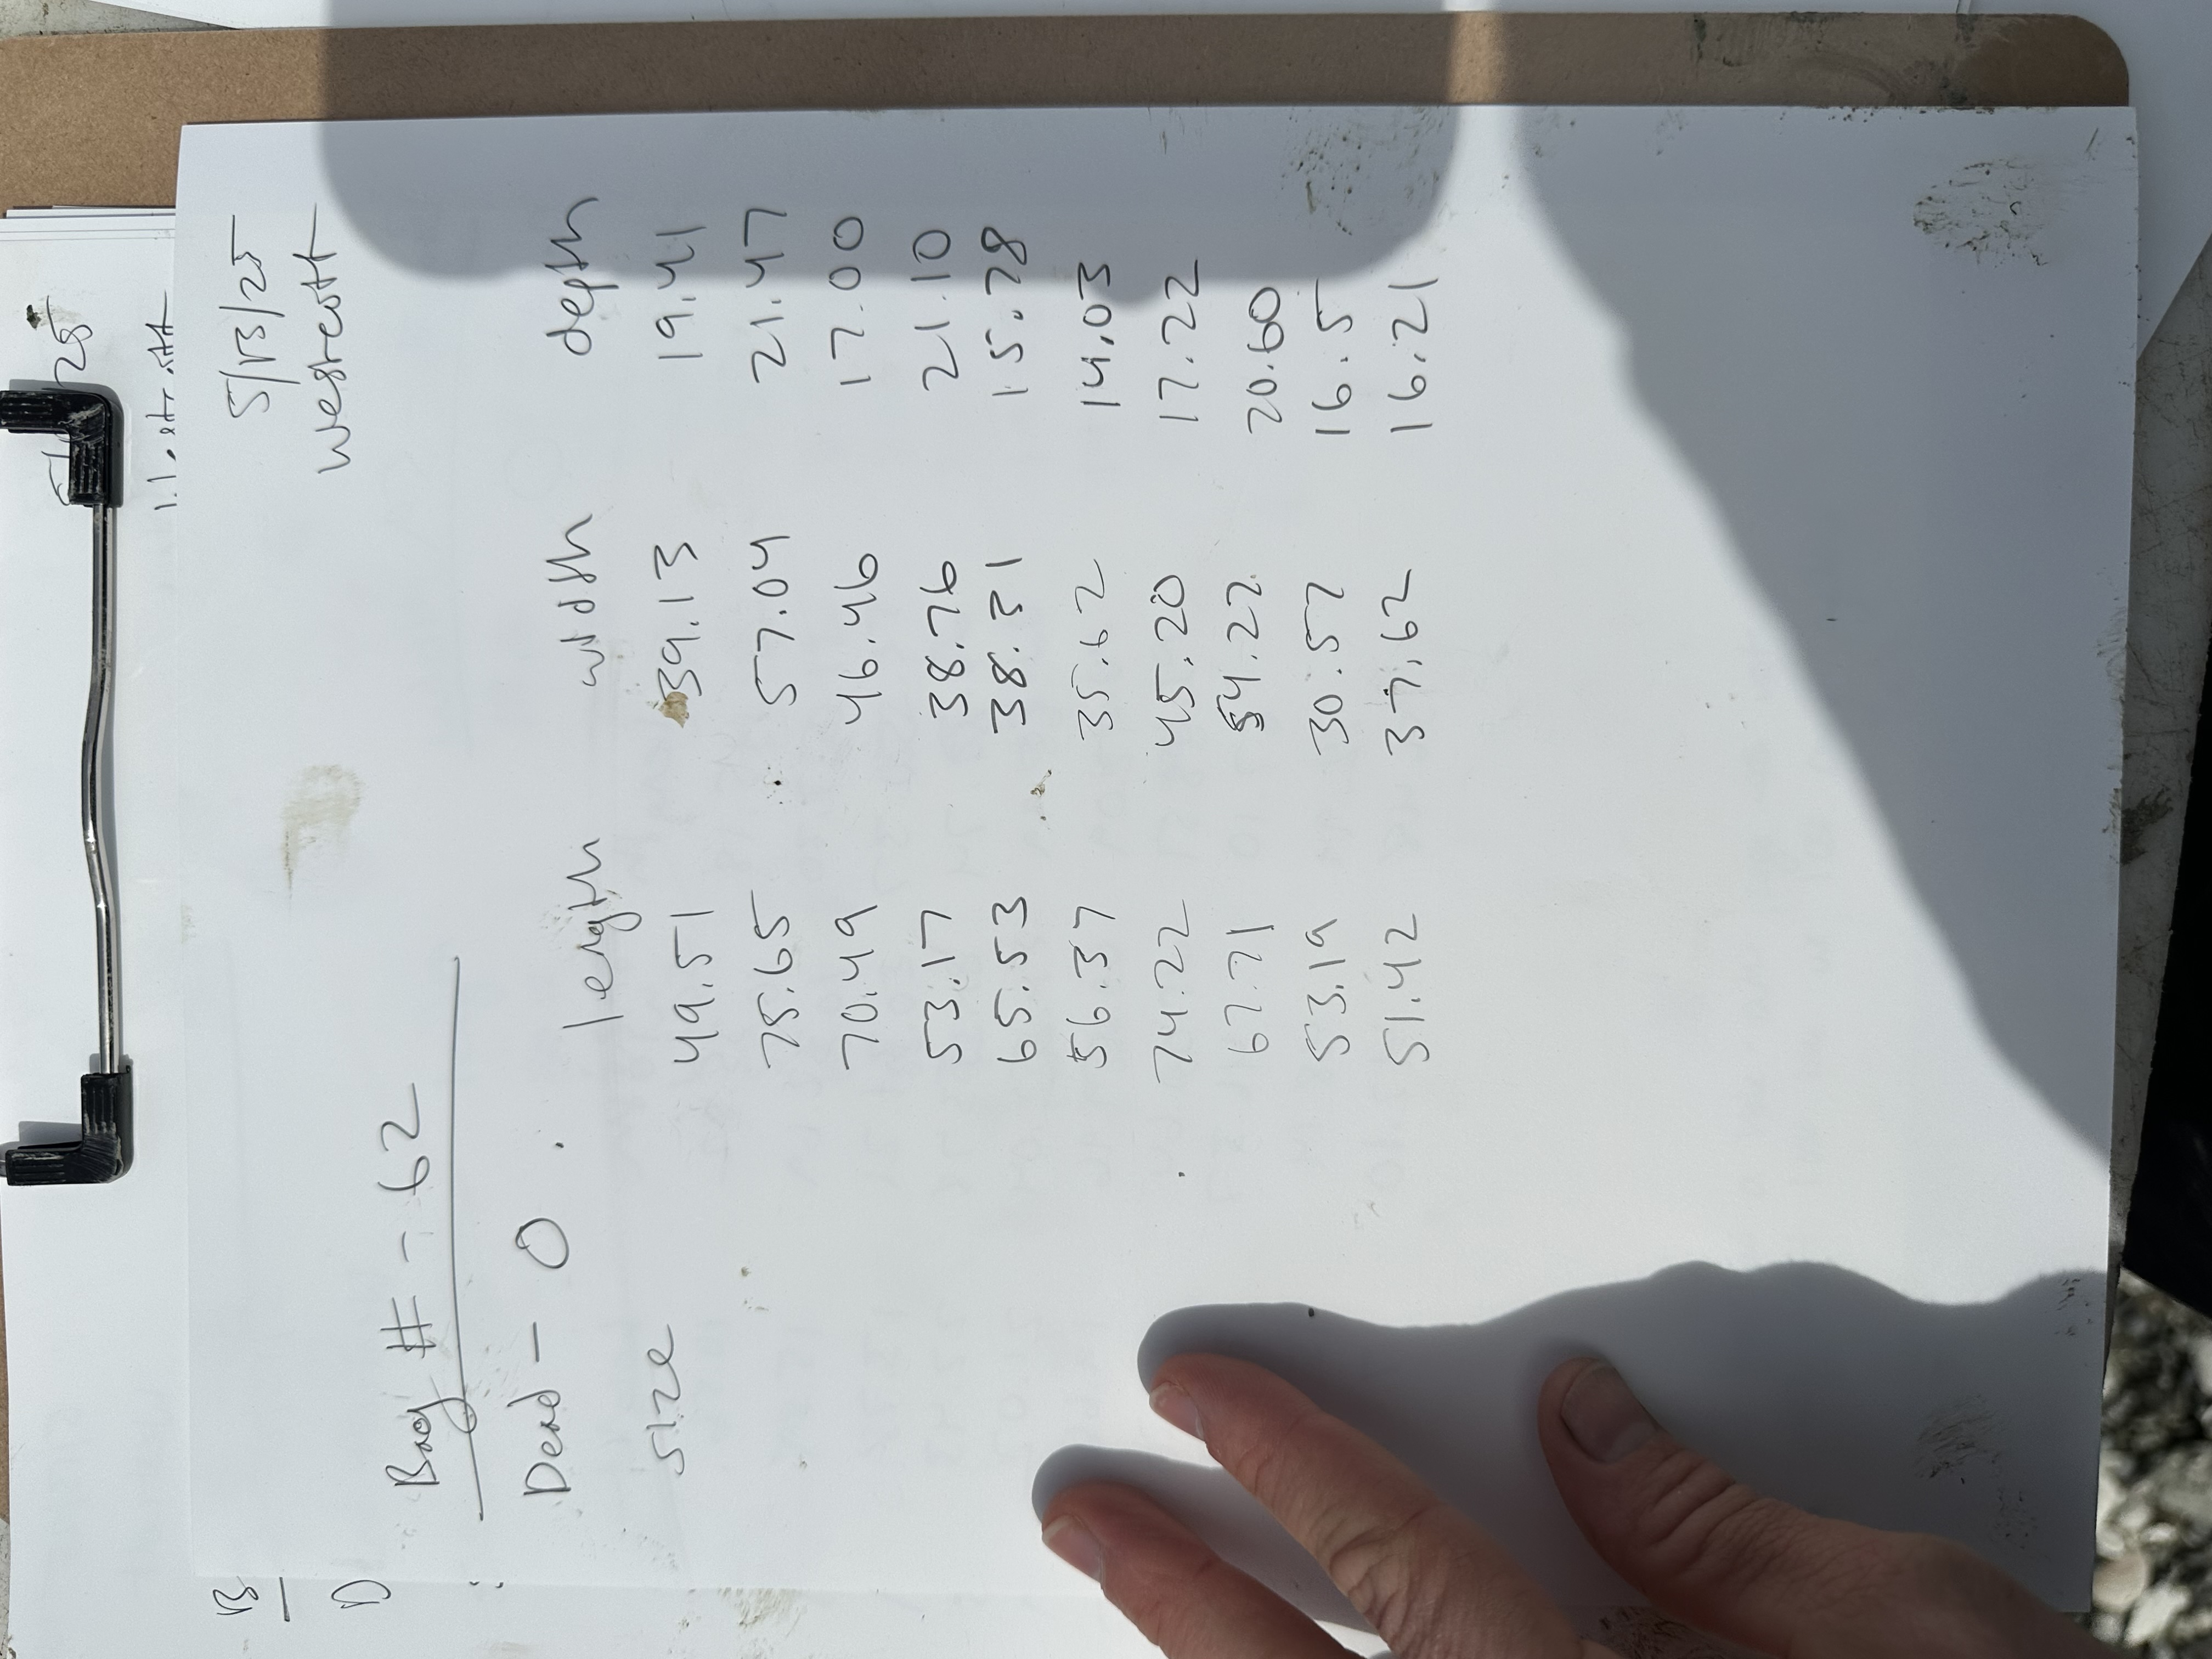 25
Westcott
B
D
5/13/25
Westcott
Bag # - 62
Dead - 0
length width depth
size 49.51 39.13 19.41
75.65 57.04 21.47
70.49 46.46 17.00
53.17 38.76 21.10
65.53 38.31 15.78
56.37 35.62 14.03
74.22 45.20 17.22
67.71 54.22 20.60
53.19 30.57 16.5
51.42 37.62 16.21